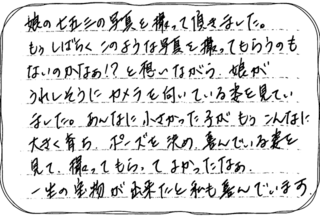 娘の七五三の写真を撮って頂きました。
もうしばらくこのような写真を撮ってもらうのも
ないのかなぁ!?と想いながら、娘が
うれしそうにカメラを向いている姿を見てい
ました。あんなに小さかった子がもうこんなに
大きく育ち、ポーズを決め、喜んでいる姿を
見て、撮ってもらってよかったなぁ。
一生の宝物が出来たと私も喜んでいます。